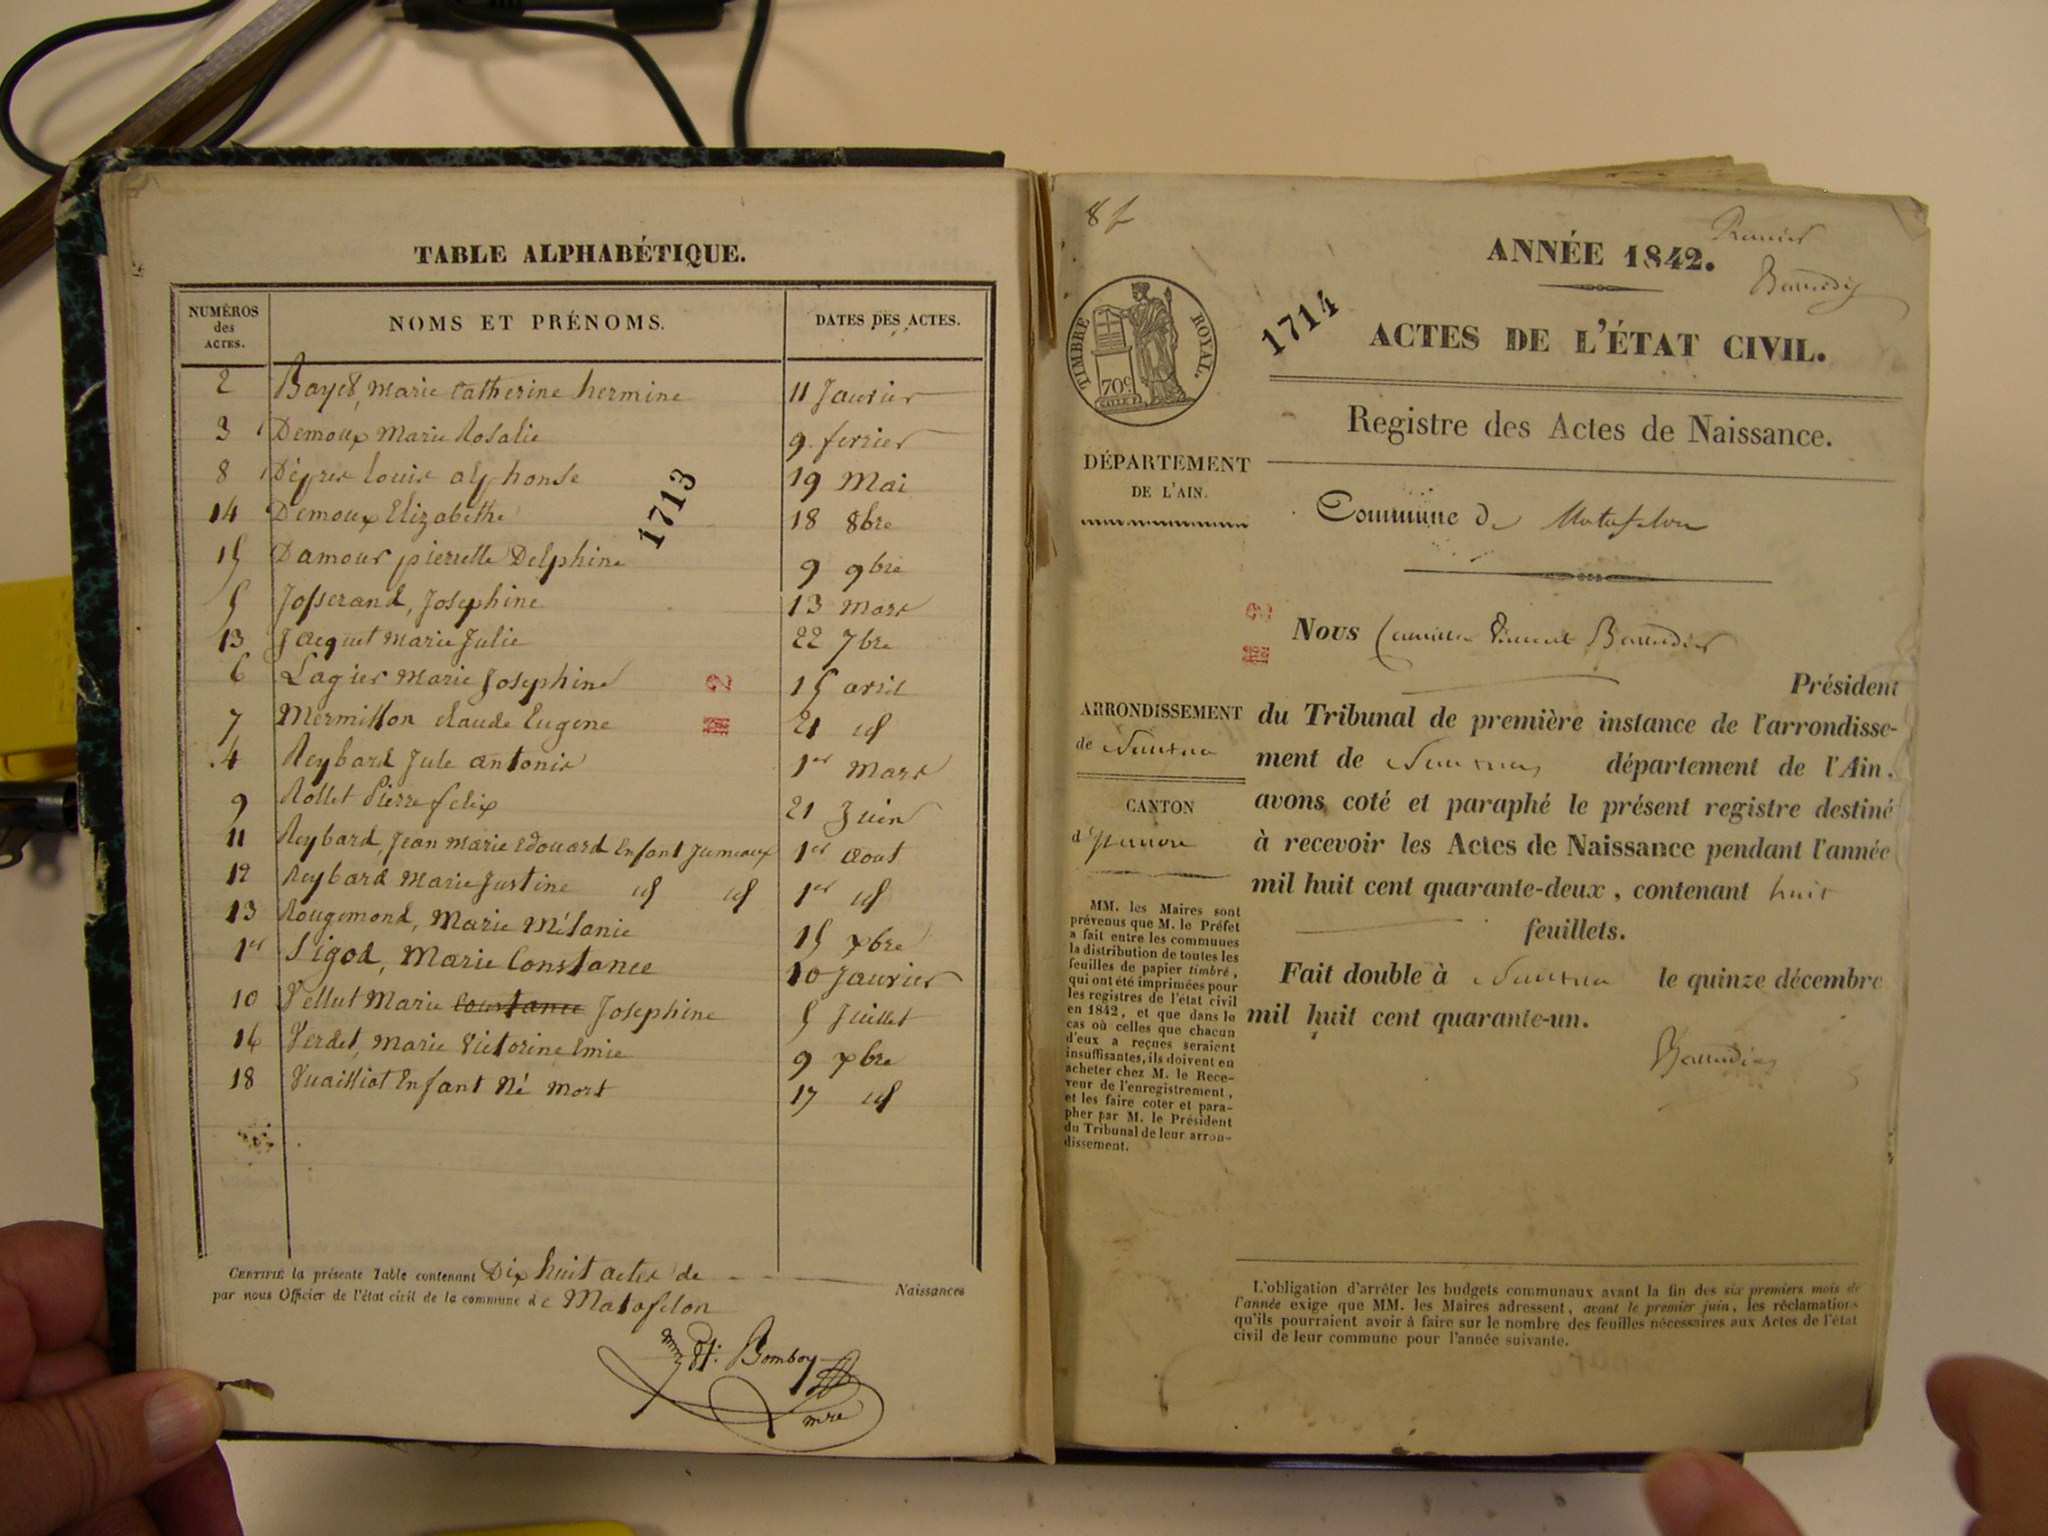 TABLE ALPHABÉTIQUE.
NUMÉROS des ACTES. NOMS ET PRÉNOMS. DATES DES ACTES.
2 marie Catherine hermine 11 Janvier
3 Demoux Marie Rosalie 9 fevrier
8 louis alphonse 19 Mai
14 Demoux Elizabethe 18 8bre
15 Damour pierrette Delphine 9 9bre
5 Josserand, Josephine 13 mars
13 Jacquet Marie Julie 22 7bre
6 Lagier Marie Josephine 15 avril
7 Mermillon claude Eugene 21 id
4 Reybard Jule antonie 1er Mars
9 Rollet Pierre felix 21 Juin
11 Reybard, Jean Marie Edouard Enfant Jumeaux 1er aout
12 Reybard Marie Justine id id 1er id
13 Rougemond, Marie Mélanie 15 xbre
1er Sigod, Marie Constance 10 Janvier
10 Vellut Marie Constance Josephine 5 Juillet
16 Verdet, Marie Victorine Emie 9 xbre
18 Vuailliot Enfant Né mort 17 id
1713
CERTIFIÉ la présente Table contenant Dix huit actes de Naissances
par nous Officier de l'état civil de la commune de Matafelon
Bomboy
mre
8 f
ANNÉE 1842.
Premier
Baudier
TIMBRE ROYAL.
70c
1714
ACTES DE L'ÉTAT CIVIL.
Registre des Actes de Naissance.
DÉPARTEMENT
DE L'AIN.
Commune de Matafelon
Nous Camille Vincent
Président
du Tribunal de première instance de l'arrondisse-
ment de Nantua département de l'Ain.
avons coté et paraphé le présent registre destiné
à recevoir les Actes de Naissance pendant l'année
mil huit cent quarante-deux, contenant huit
feuillets.
Fait double à Nantua le quinze décembre
mil huit cent quarante-un.
ARRONDISSEMENT
de Nantua
CANTON
d'Izernore
MM. les Maires sont
prévenus que M. le Préfet
a fait entre les communes
la distribution de toutes les
feuilles de papier timbré,
qui ont été imprimées pour
les registres de l'état civil
en 1842, et que dans le
cas où celles que chacun
d'eux a reçues seraient
insuffisantes, ils doivent en
acheter chez M. le Rece-
veur de l'enregistrement,
et les faire coter et para-
pher par M. le Président
du Tribunal de leur arron-
dissement.
L'obligation d'arrêter les budgets communaux avant la fin des six premiers mois de
l'année exige que MM. les Maires adressent, avant le premier juin, les réclamations
qu'ils pourraient avoir à faire sur le nombre des feuilles nécessaires aux Actes de l'état
civil de leur commune pour l'année suivante.